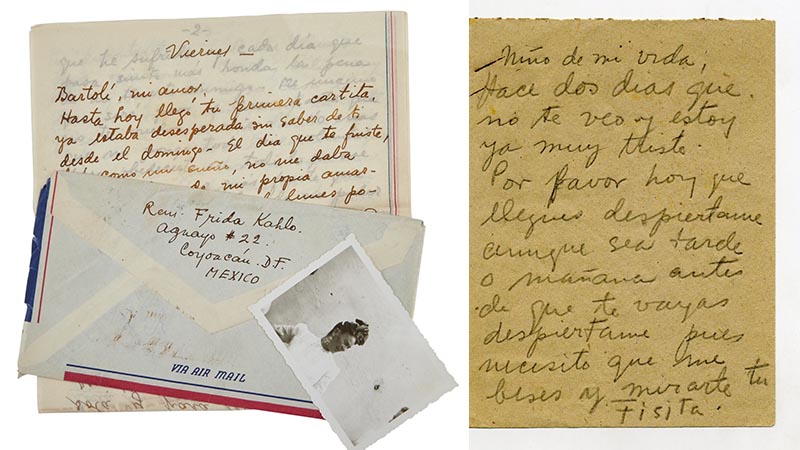 -2-
que he sufri cada dia que
Viernes —
Bartolí, mi amor
Hasta hoy llegó tu primera cartita,
ya estaba desesperada sin saber de ti
desde el domingo. El dia que te fuiste,
como un sueño, no me daba
de mi propia amar-
lunes po-
Rem. Frida Kahlo.
Aguayo # 22.
Coyoacán. D.F.
MEXICO
VIA AIR MAIL
— Niño de mi vida,
Hace dos dias que
no te veo y estoy
ya muy triste.
Por favor hoy que
llegues despiertame
aunque sea tarde
o mañana antes
de que te vayas
despiertame pues
necesito que me
beses y mirarte tu
Fisita.